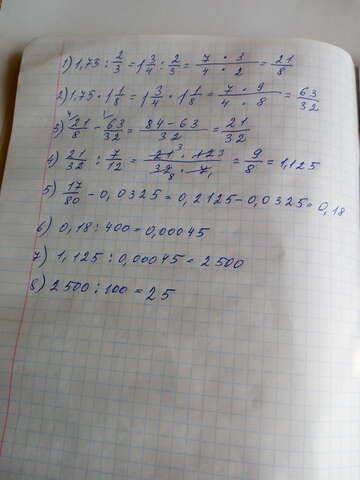 1) 1,75 : 2/3 = 1 3/4 : 2/3 = (7 · 3)/(4 · 2) = 21/8
2) 1,75 · 1 1/8 = 1 3/4 · 1 1/8 = (7 · 9)/(4 · 8) = 63/32
3) 21/8 - 63/32 = (84 - 63)/32 = 21/32
4) 21/32 : 7/12 = (21³ · 12³)/(32₈ · 7₁) = 9/8 = 1,125
5) 17/80 - 0,0325 = 0,2125 - 0,0325 = 0,18
6) 0,18 : 400 = 0,00045
7) 1,125 : 0,00045 = 2500
8) 2500 : 100 = 25